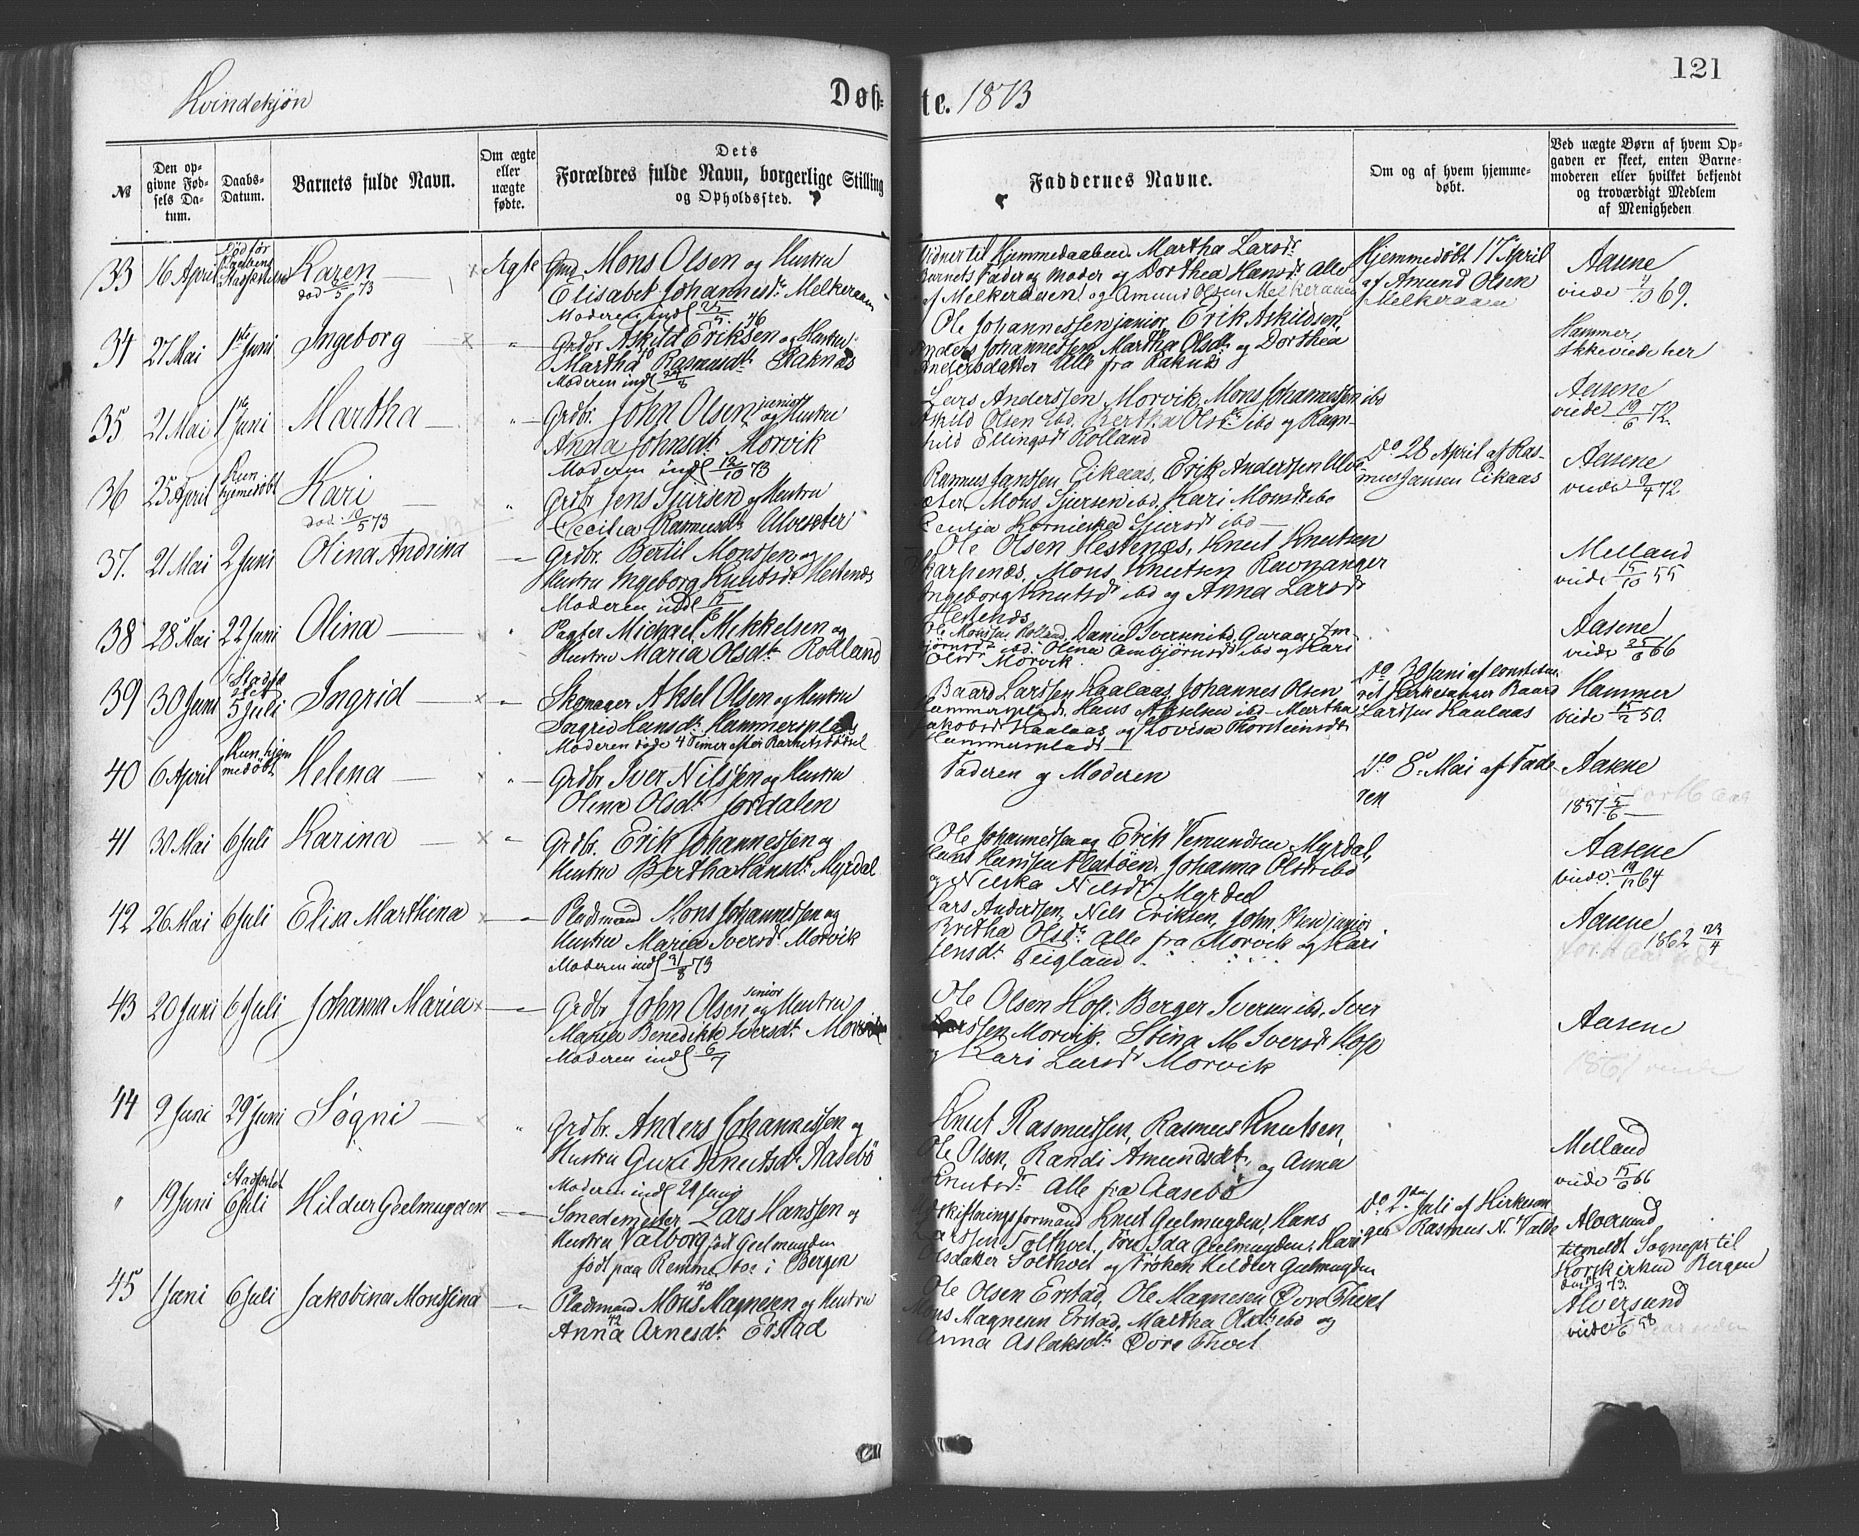 121
Kvindekjøn
Døb-te. 1873
№
Den opgivne Fødsels Datum.
Daabs-Datum.
Barnets fulde Navn.
Om ægte eller uægte fødte.
Dets Forældres fulde Navn, borgerlige Stilling og Opholdssted.
Faddernes Navne.
Om og af hvem hjemmedøbt.
Ved uægte Børn af hvem Opgaven er skeet, enten Barnemoderen eller hvilket bekjendt og troværdigt Medlem af Menigheden
33 16 April Karen Ægte Mons Olsen og Hustru
død 5/73
Elisabet Johannesdr Melkeraaen
Vidner til Hjemmedaaben Martha Larsdr
Barnets Fader og Moder og Dorthea Hansdr Alle
af Melkeraaen og Amund Olsen Melkeraaen
Hjemmedøbt 17 April
af Amund Olsen
Melkeraaen
Aasene
viede 69.
34 27 Mai 1ste Juni Ingeborg " Grdbr Askild Eriksen og Hustru
Martha Rasmusdr Raknæs
Moderen indl 24/8
Ole Johannessen junior, Erik Askildsen,
Anders Johannessen Martha Olsdr og Dorthea
Andersdatter Alle fra Raknæs
Hammer
Ikke viede her
35 21 Mai 1ste Juni Martha " Grdbr. John Olsen junior og Hustru
Anna Johnsdr Morvik
Moderen indl 12/10 73
Lars Anderssen Morvik, Mons Johannessen ibd
Askild Olsen ibd. Bertha Olsdr ibd og Ragn-
hild Ellingsdr Rolland
Aasene
viede 19/6 72.
36 25 April Kun hjemedøbt Kari
død 10/5 73
Grdbr Jens Sjursen og Hustru
Cecilia Rasmusdr Ulvesæter
Rasmus Jansen Eikaas, Erik Anderssen Ulve-
sæter Mons Sjursen ibd. Kari Monsdr ibd
Cecilia Kornielia Sjursdr ibd
Do 28 April af Ras-
mus Jansen Eikaas
Aasene
viede 9/4 72.
37. 21 Mai 2 Juni Olina Andrina Grdbr. Bertil Monssen og
Hustru Ingeborg Knutsdr Hestenæs
Moderen indl 15/6
Ole Olsen Hestenæs, Knut Knutsen
Skarpenæs, Mons Knutsen Ravnanger
Ingeborg Knutsdr ibd og Anna Larsdr
Hestenæs
Melland
viede 15/10 55
38 28 Mai 22 Juni Olina " Pagter Michael Mikkelsen og
Hustru Maria Olsdr Rolland
Ole Monssen Rolland, Daniel Iversen ibd, Guraa Am-
bjørnsdr ibd. Olina Ambjørnsdr ibd og Kari
Olsdr Morvik.
Aasene
viede 25/6 66
39 30 Juni Stadfæstet 5 Juli Ingrid " Skomager Aksel Olsen og Hustru
Ingrid Hansdr Hammersplads
Moderen døde 4 Timer efter Barnets Fødsel
Baard Larssen Kaalaas, Johannes Olsen
Hammersplads, Hans Akselsen ibd Martha
Jakobsdr Kaalaas og Lovisa Thorsteinsdr
Hammersplads
Do 30 Juni af constitu-
Kirkesanger Baard
Larssen Kaalaas
Hammer
viede 15/2 50.
40 6 April Kun hjemmedøbt Helena " Grdbr. Iver Nilssen og Hustru
Olina Olsdr Jordalen
Faderen og Moderen
Do 8 Mai af Fade-
ren
Aasene
1857 5/6
41 30 Mai 6 Juli Karina " Grdbr. Erik Johannessen og
Hustru Bertha Hansdr Myrdal
Ole Johannessen og Erik Vemundsen Myrdal,
Hans Hanssen Flatøen, Johanna Olsdr ibd
og Nilska Nilsdr Myrdal
Aasene
viede 64
42 26 Mai 6 Juli Elisa Marthina Pladsmand Mons Johannessen og
Hustru Maria Iversdr Morvik
Moderen indl 31/8 73
Lars Anderssen, Nils Eriksen, John Olsen junior
Britha Olsdr Alle fra Morvik og Kari
Jensdr Teigland
Aasene
1862 23/4
43 20 Juni 6 Juli Johanna Maria Grdbr. John Olsen senior og Hustru
Maria Benedikte Iversdr Morvik
Moderen indl 6/7
Ole Olsen Hope Berger Iversen ibd, Iver
Larssen Morvik. Stina M Iversdr Hope
og Kari Larsdr Morvik
Aasene
44 9 Juni 29 Juni Søgni " Grdbr. Anders Johannessen og
Hustru Guri Knutsdr Aasebö
Moderen indl 29 Juni
Knut Rasmussen, Rasmus Knutsen,
Ole Olsen, Randi Amundsdr, og Anna
Knutsdr Alle fra Aasebö
Melland
viede 15/6 66
" 19 Juni Stadfæstet 6 Juli Hildur Geelmuyden Smedemester Lars Hanssen og
Hustru Valborg født Geelmuyden
født paa Remme bor i Bergen
Udskiftningsformand Knut Geelmuyden, Hans
Larssen Tolthvet, Fru Ida Geelmuyden, Kari
Olsdatter Tolthvet og Frøken Hildur Geelmuyden
Do 2den Juli af Kirkesan-
ger Rasmus N. Valde
Alversund
tilmeldt Sognepr til
Korskirken Bergen
45 1 Juni 6 Juli Jakobina Monssina Pladsmand Mons Magnesen og Hustru
Anna Arnesdr Erstad
Ole Olsen Erstad, Ole Magnesen Øvre Thvet
Mons Magnesen Erstad, Martha Olsdr ibd og
Anna Aslaksdr Øvre Thvet
Alversund
viede 58